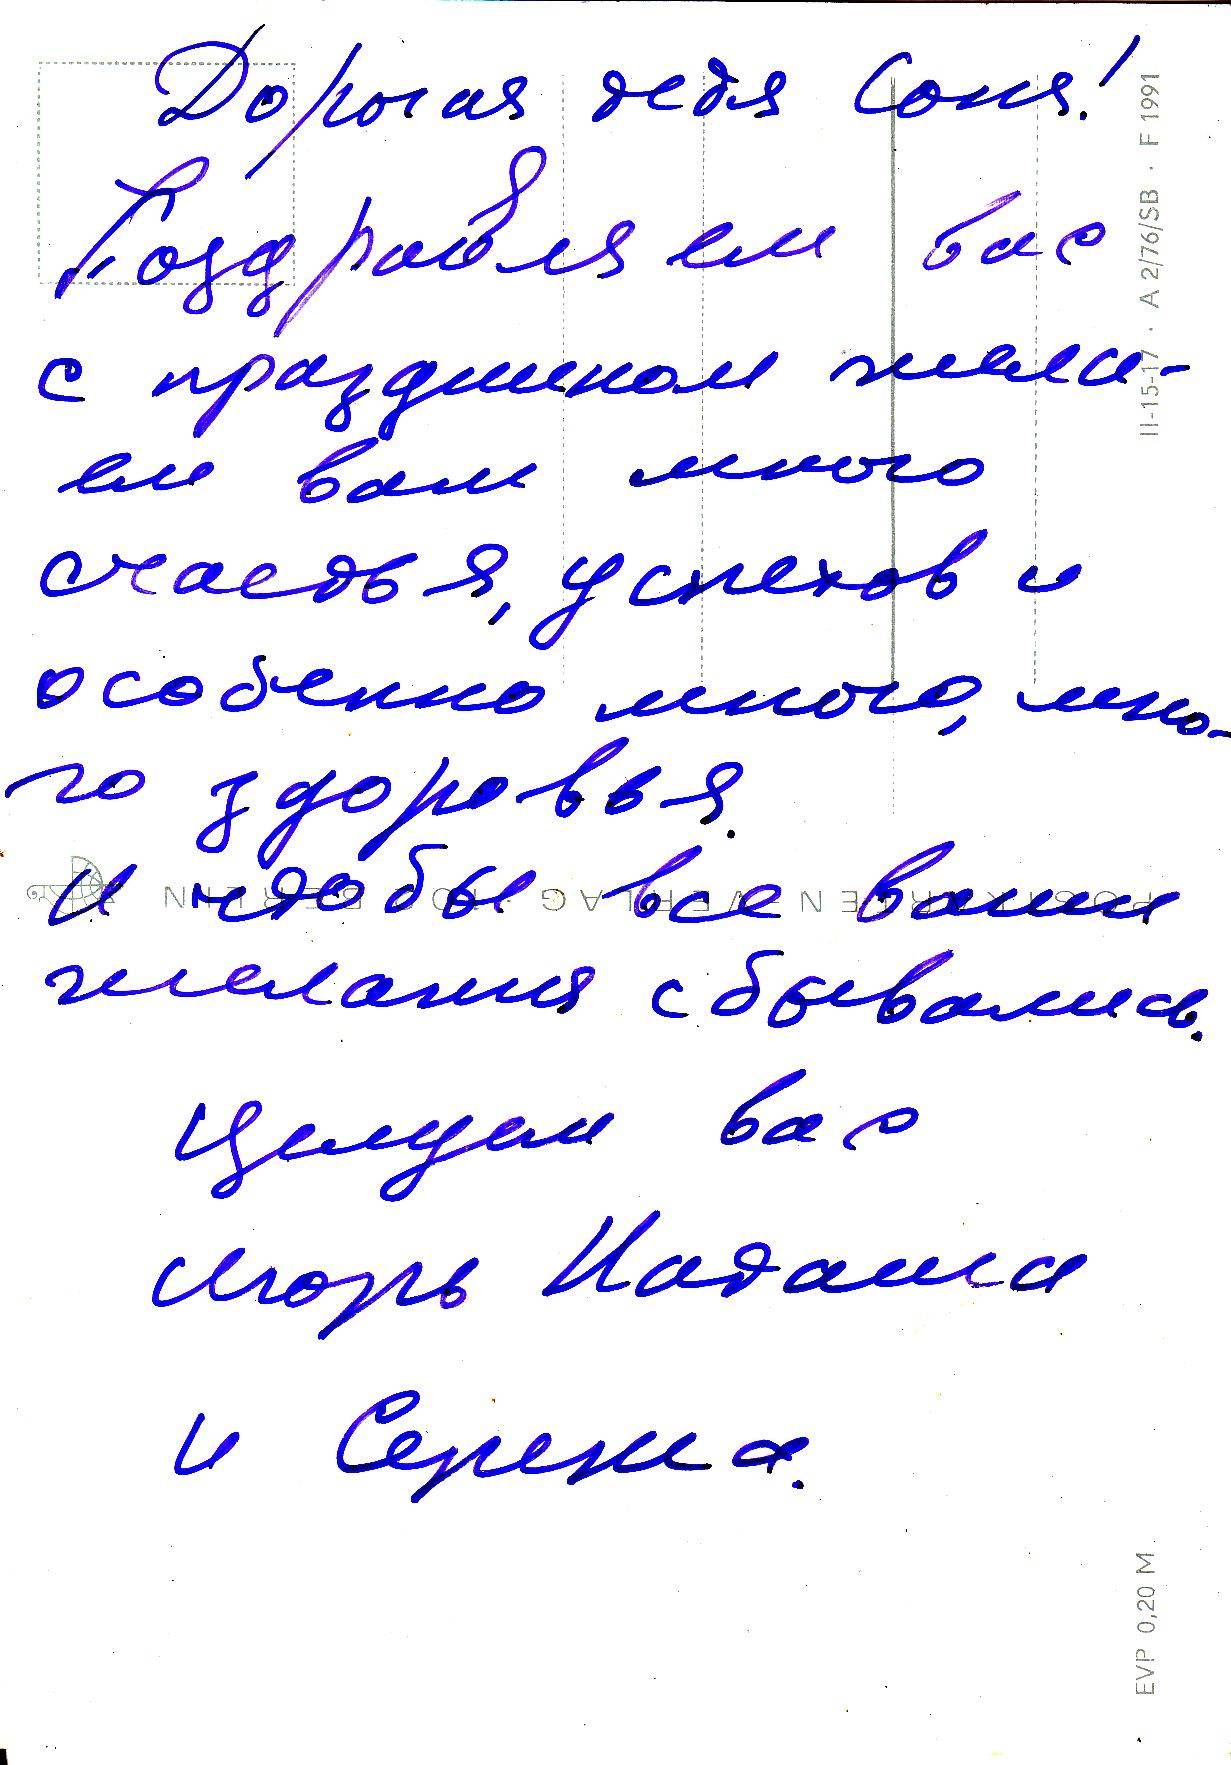 Дорогая тетя Соня!
Поздравляем вас
с праздником жела-
ем вам много
счастья, успехов и
особенно много, мно-
го здоровья.
И чтобы все ваши
желания сбывались.
Целуем вас
Игорь Наташа
и Сережа.
II-15-17 · A 2/76/SB · F 1991
POSTKARTEN-VERLAG BERLIN
EVP 0,20 M